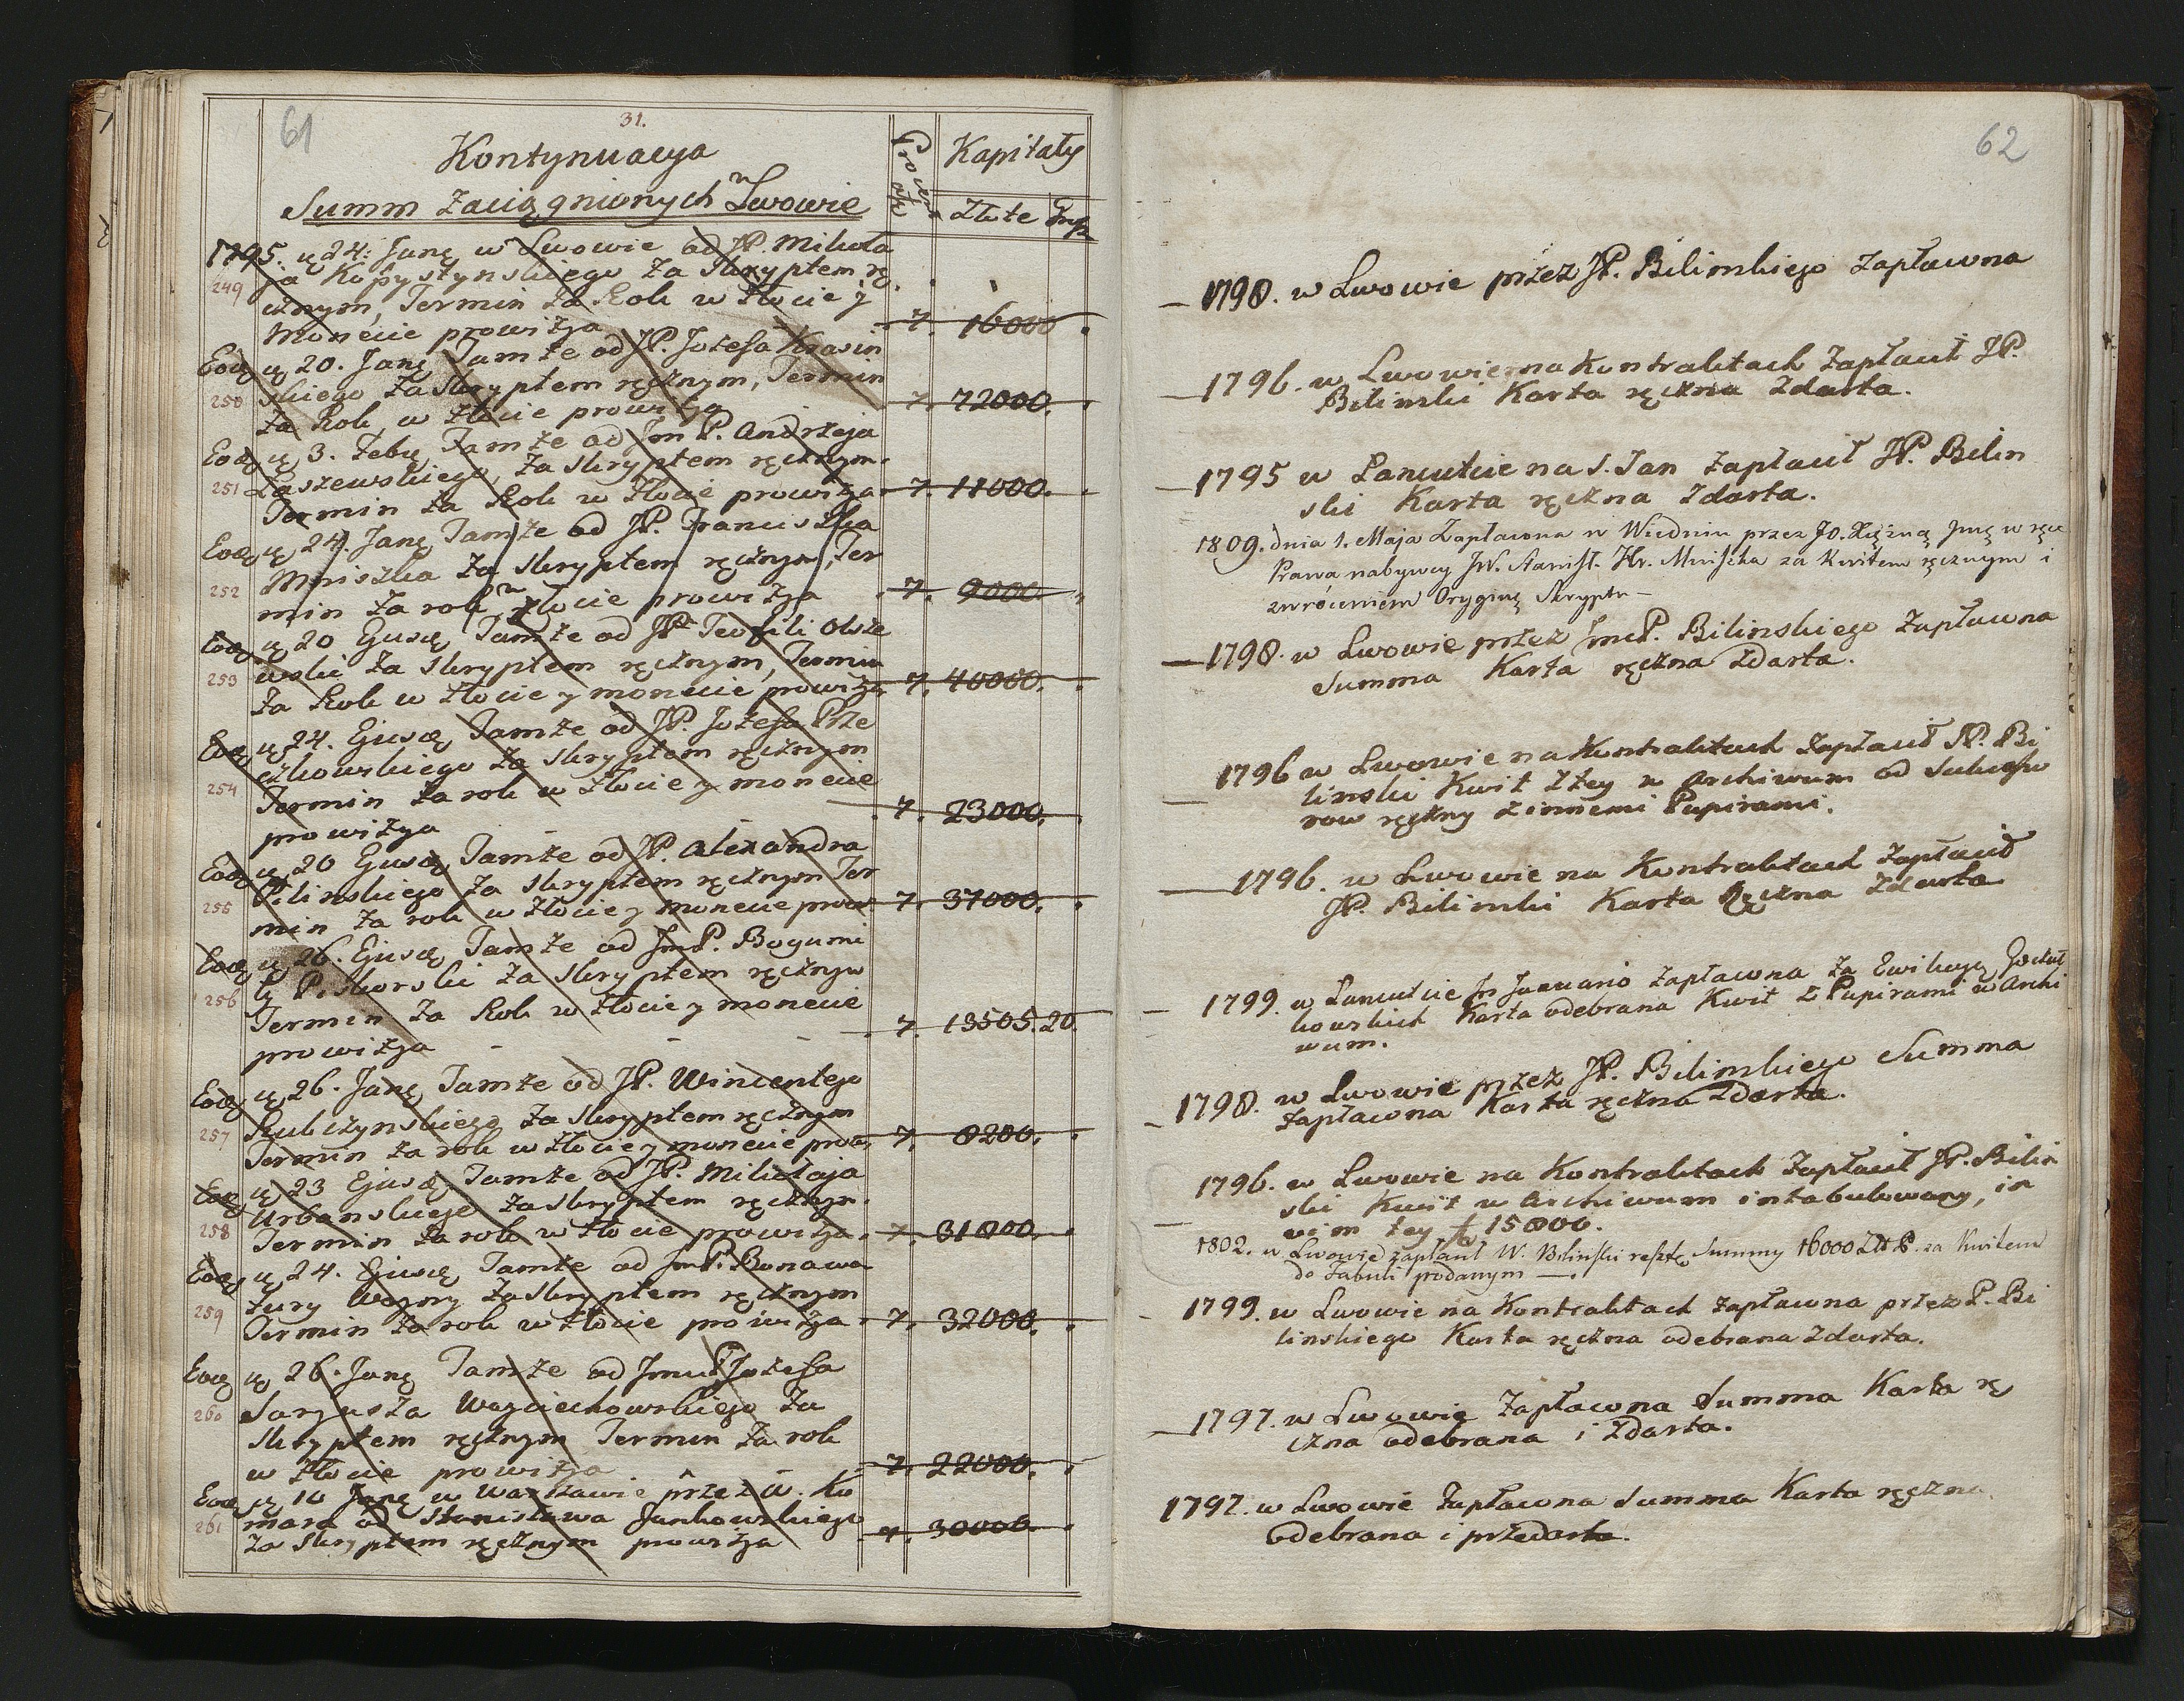 61
31.
Kontynuacya
Summ Zaciągnionych w Lwowie
Procenta
Kapitały
Złote Gr.
1795. ę 24. Janę w Lwowie od JP. Mikoła
249 ja Kopystynskiego za Skryptem rę
cznym, Termin za Rok w Złocie y
Monecie prowizya 7. 16000
Eodę ę 20. Janę Tamże od JP. Jozefa Krasin
skiego za Skryptem ręcznym, Termin
250 za Rok, w Złocie prowizya 7. 72000.
Eodę ę 3. Febę Tamże od Jm P. Andrzeja
251 Łaszewskiego, za Skryptem ręcznym.
Termin za Rok w Złocie prowizya 7. 11000.
Eodę ę 24. Janę Tamże od JP. Franciszka
Mniszka za Skryptem ręcznym, Ter
252 min za rok w Złocie prowizya 7. 9000.
Eodę ę 20 Ejusdę Tamże od JP. Teofili Olsze
253 wski za Skryptem ręcznym, Termin
za Rok w Złocie y monecie prowizya 7. 40000.
Eodę ę 24. Ejusdę Tamże od JP. Jozefa Prze
czkowskiego za Skryptem ręcznym
254 Termin za rok w Złocie y monecie
prowizya 7. 23000.
Eodę ę 20 Ejusdę Tamże od JP. Alexandra
Pilinskiego za Skryptem ręcznym Ter
255 min za rok w Złocie y monecie prow. 7. 37000.
Eodę ę 26. Ejusdę Tamże od Jm P. Bogumi
ły Piskorski za Skryptem ręcznym
256 Termin za Rok w Złocie y monecie
prowizya 7. 13505.20.
Eodę ę 26. Janę Tamże od JP. Wincentego
Rubczynskiego za Skryptem ręcznym
257 Termin za rok w Złocie y monecie prow. 7. 8200.
Eodę ę 23 Ejusdę Tamże od JP. Mikołaja
Urbanskiego za Skryptem ręcznym.
258 Termin za rok w Złocie prowizya 7. 31000.
Eodę ę 24. Ejusdę Tamże od Jm P. Bonawe
tury Wojny za Skryptem ręcznym
259 Termin za rok w Złocie prowizya 7. 32000.
Eodę ę 26. Janę Tamże od Jmci P. Jozefa
260 Sarjusza Woyciechowskiego za
Skryptem ręcznym Termin za rok
w Złocie prowizya 7. 22000.
Eodę ę 10 Janę w Warszawie przez W. Ko
261 mara od Stanisława Jankowskiego
za Skryptem ręcznym prowizya 7. 30000.
62
1798. w Lwowie przez JP. Bilinskiego zapłacona
1796. w Lwowie na Kontraktach Zapłacił JP.
Bilinski Karta ręczna Zdarta.
1795 w Łancutcie na S. Jan zapłacił JP. Bilin
ski Karta ręczna Zdarta.
1809. dnia 1. Maja Zapłacona w Wiedniu przez JO. Xiężną Jmę w ręce
Prawa nabywcy JW. Stanisł. Hr. Mniszka za Kwitem ręcznym i
zwróceniem Oryging Skryptu —
1798. w Lwowie przez JmcP. Bilinskiego Zapłacona
Summa Karta ręczna Zdarta.
1796 w Lwowie na Kontraktach zapłacił JP. Bi
linski Kwit z tey w Archiwum od Sukcesso
row ręczny z innemi Papirami.
1796. w Lwowie na Kontraktach Zapłacił
JP. Bilinski Karta Ręczna Zdarta
1799. w Lancutcie in Januario zapłacona za Ewikcyą
kowskich Karta odebrana Kwit z Papirami w Archi
wum.
1798. w Lwowie przez JP. Bilinskiego Summa
Zapłacona Karta ręczna Zdarta.
1796. w Lwowie na Kontraktach Zapłacił JP. Bilin
ski Kwit w Archiwum intabulowany, in
vim tey 15000.
1802. w Lwowie zapłacił W. Biliński resztę Summy 16000 Złt P. za Kwitem
do Tabuli podanym —.
1799. w Lwowie na Kontraktach zapłacona przez P. Bi
linskiego Karta ręczna odebrana Zdarta.
1797. w Lwowie Zapłacona Summa Karta rę
czna odebrana i Zdarta.
1797. w Lwowie Zapłacona Summa Karta ręczna
odebrana i przedarta.